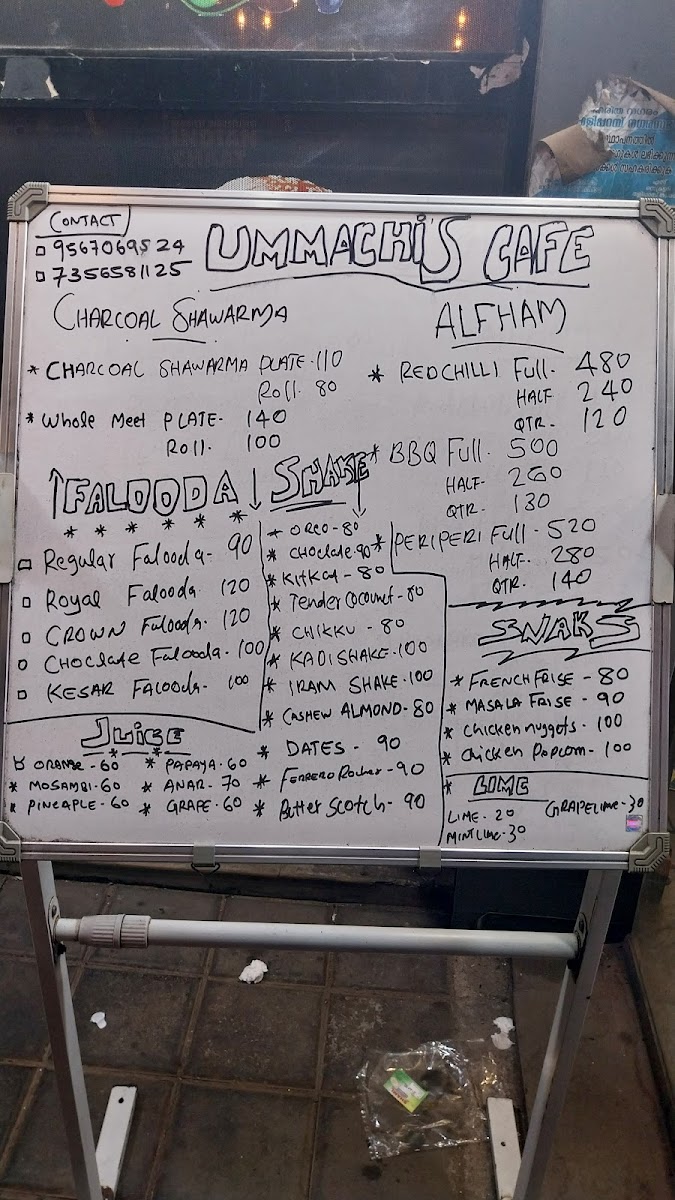 CONTACT
9567069524
7356581125
UMMACHI'S CAFE
CHARCOAL SHAWARMA
* CHARCOAL SHAWARMA PLATE-110
Roll. 80
* Whole Meet PLATE- 140
Roll. 100
ALFHAM
* REDCHILLI Full- 480
HALF 240
QTR- 120
* BBQ Full- 500
HALF- 260
QTR- 130
* PERIPERI Full- 520
HALF- 280
QTR- 140
FALOODA
* * * * * *
Regular Falooda- 90
Royal Falooda 120
CROWN Falooda- 120
CHOCLATE FALOODA- 100
KESAR FALOODA- 100
SHAKE
* OREO-80
* CHOCLATE-90
* KitKat-80
* Tender Coconut-80
* CHIKKU-80
* KADISHAKE-100
* IRAM SHAKE-100
* CASHEW ALMOND-80
* DATES- 90
* FERRERO Rocher-90
* Butter Scotch-90
SNAKS
* FRENCH FRISE-80
* MASALA FRISE-90
* Chicken nuggets-100
* Chicken Popcorn-100
JUICE
ORANGE-60
* MOSAMBI-60
* PINEAPLE-60
* PAPAYA-60
* ANAR-70
* GRAPE-60
* LIME
LIME-20
MINTLIME-30
GRAPELIME-30